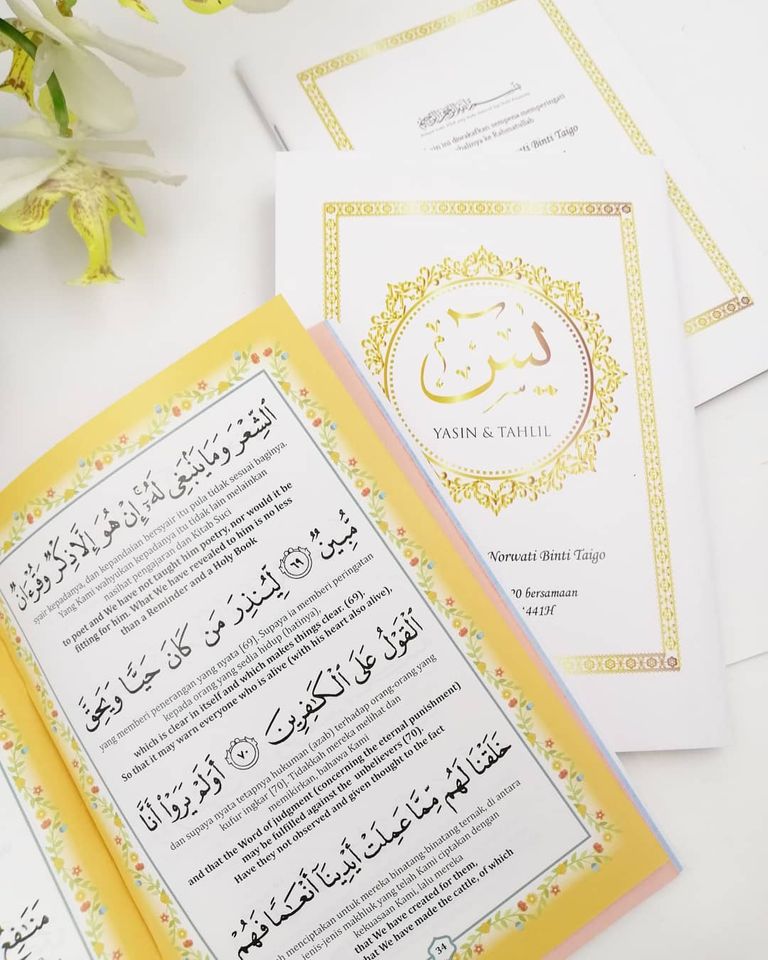 ini diwakafkan sempena memperingati
ke Rahmatullah
Binti Taigo
يس
YASIN & TAHLIL
Norwati Binti Taigo
20 bersamaan
1441H
ٱلشِّعْرَ وَمَا يَنۢبَغِى لَهُۥٓ ۚ إِنْ هُوَ إِلَّا ذِكْرٌ وَقُرْءَانٌ
syair kepadanya, dan kepandaian bersyair itu pula tidak sesuai baginya.
Yang Kami wahyukan kepadanya itu tidak lain melainkan
nasihat pengajaran dan Kitab Suci
to poet and We have not taught him poetry, nor would it be
fitting for him. What We have revealed to him is no less
than a Reminder and a Holy Book
مُّبِينٌ ٦٩ لِّيُنذِرَ مَن كَانَ حَيًّا وَيَحِقَّ
yang memberi penerangan yang nyata [69]. Supaya ia memberi peringatan
kepada orang yang sedia hidup (hatinya).
which is clear in itself and which makes things clear. (69).
So that it may warn everyone who is alive (with his heart also alive),
ٱلْقَوْلُ عَلَى ٱلْكَـٰفِرِينَ ٧٠ أَوَلَمْ يَرَوْا۟ أَنَّا
dan supaya nyata tetapnya hukuman (azab) terhadap orang-orang yang
kufur ingkar [70]. Tidakkah mereka melihat dan
memikirkan, bahawa Kami
and that the Word of judgment (concerning the eternal punishment)
may be fulfilled against the unbelievers (70)
Have they not observed and given thought to the fact
خَلَقْنَا لَهُم مِّمَّا عَمِلَتْ أَيْدِينَآ أَنْعَـٰمًا فَهُمْ
menciptakan untuk mereka binatang-binatang ternak, di antara
jenis-jenis makhluk yang telah Kami ciptakan dengan
kekuasaan Kami, lalu mereka
that We have created for them,
that We have made the cattle, of which
34